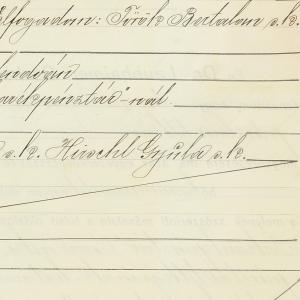 Elfogadom: Török Bertalan s. k.
takarékpénztár"-nál.
s. k. Hirschl Gyula s. k.